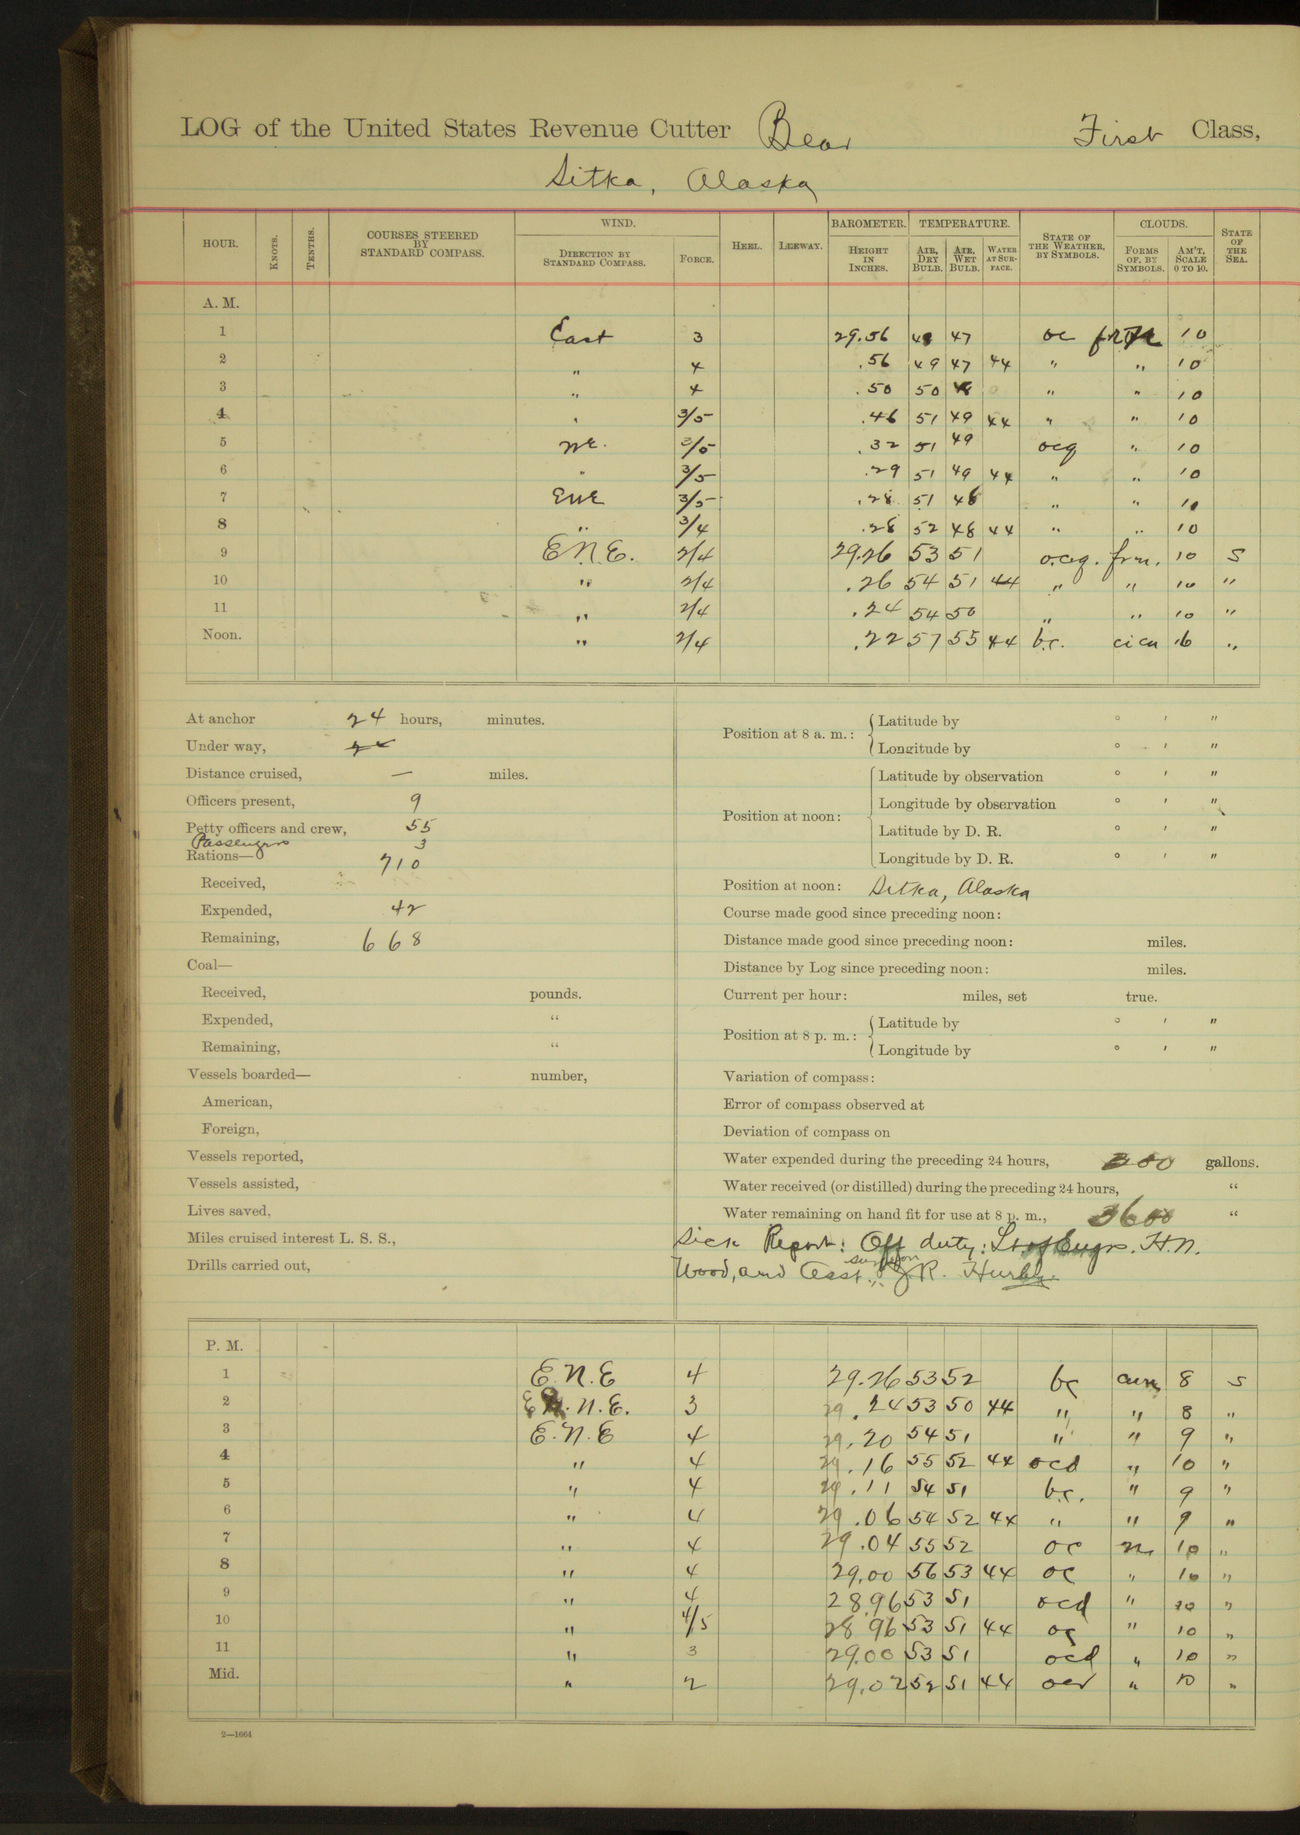 LOG of the United States Revenue Cutter Bear First Class,
Sitka, Alaska
HOUR. KNOTS. TENTHS. COURSES STEERED BY STANDARD COMPASS. WIND. DIRECTION BY STANDARD COMPASS. FORCE. HEEL. LEEWAY. BAROMETER. HEIGHT IN INCHES. TEMPERATURE. AIR, DRY BULB. AIR, WET BULB. WATER AT SURFACE. STATE OF THE WEATHER, BY SYMBOLS. CLOUDS. FORMS OF, BY SYMBOLS. AM'T, SCALE 0 TO 10. STATE OF THE SEA.
A. M.
1 East 3 29.56 47 oc 10
2 " 4 .56 49 47 44 " " 10
3 " 4 .50 50 48 " " 10
4 " 3/5 .46 51 49 44 " " 10
5 NE. 3/5 .32 51 49 ocq " 10
6 " 3/5 .29 51 49 44 " " 10
7 ENE 3/5 .28 51 48 " " 10
8 " 3/4 .28 52 48 44 " " 10
9 E.N.E. 2/4 29.26 53 51 ocq. frm. 10 S
10 " 2/4 .26 54 51 44 " " 10 "
11 " 2/4 .24 54 50 " " 10 "
Noon. " 2/4 .22 57 55 44 b.c. cicu 6 "
At anchor 24 hours, minutes.
Under way,
Distance cruised, — miles.
Officers present, 9
Petty officers and crew, 55
Passengers 3
Rations— 710
Received,
Expended, 42
Remaining, 668
Coal—
Received, pounds.
Expended, "
Remaining, "
Vessels boarded— number,
American,
Foreign,
Vessels reported,
Vessels assisted,
Lives saved,
Miles cruised interest L. S. S.,
Drills carried out,
Position at 8 a. m.: Latitude by ° ′ ″
Longitude by ° ′ ″
Position at noon: Latitude by observation ° ′ ″
Longitude by observation ° ′ ″
Latitude by D. R. ° ′ ″
Longitude by D. R. ° ′ ″
Position at noon: Sitka, Alaska
Course made good since preceding noon:
Distance made good since preceding noon: miles.
Distance by Log since preceding noon: miles.
Current per hour: miles, set true.
Position at 8 p. m.: Latitude by ° ′ ″
Longitude by ° ′ ″
Variation of compass:
Error of compass observed at
Deviation of compass on
Water expended during the preceding 24 hours, 200 gallons.
Water received (or distilled) during the preceding 24 hours, "
Water remaining on hand fit for use at 8 p. m., 3600 "
Sick Report: Off duty: H.N.
Wood, and Asst. Surgeon J.R. Hurley.
P. M.
1 E.N.E 4 29.26 53 52 bc cum 8 S
2 E.N.E. 3 29.24 53 50 44 " " 8 "
3 E.N.E 4 29.20 54 51 " " 9 "
4 " 4 29.16 55 52 44 ocd " 10 "
5 " 4 29.11 54 51 b.c. " 9 "
6 " 4 29.06 54 52 44 " " 9 "
7 " 4 29.04 55 52 oc n 10 "
8 " 4 29.00 56 53 44 oc " 10 "
9 " 4 28.96 53 51 ocd " 10 "
10 " 4/5 28.96 53 51 44 oc " 10 "
11 " 3 29.00 53 51 ocd " 10 "
Mid. " 2 29.02 52 51 44 ocr " 10 "
2—1664